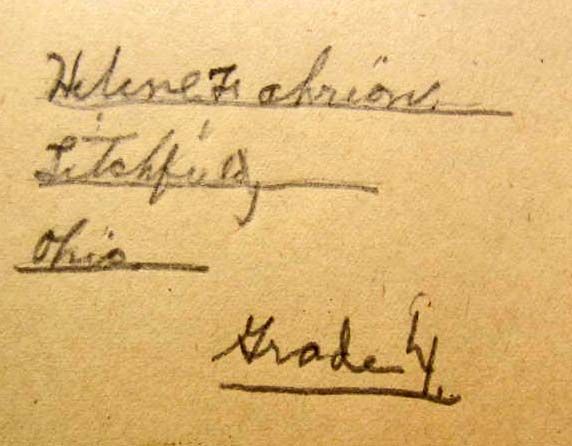 Helene Fahrion
Litchfield,
Ohio
Grade 4.